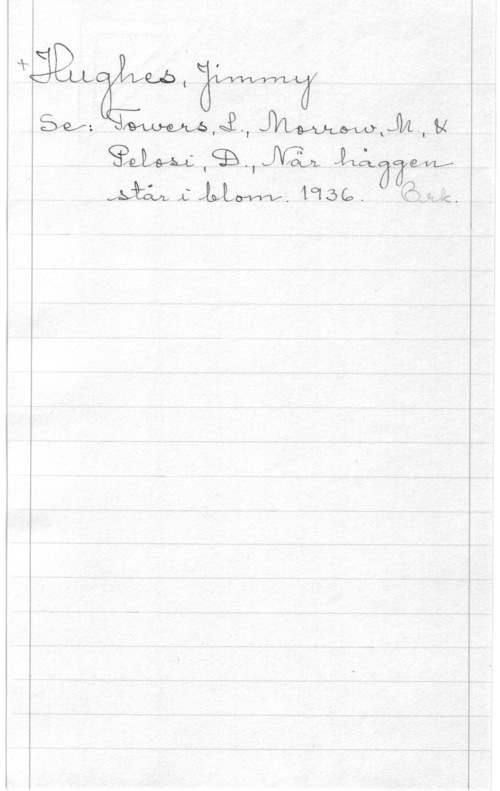 +Hughes, Jimmy
Se: Towers, L., Morrow, M., &
Pelosi, D., När häggen
står i blom. 1936. Brk.